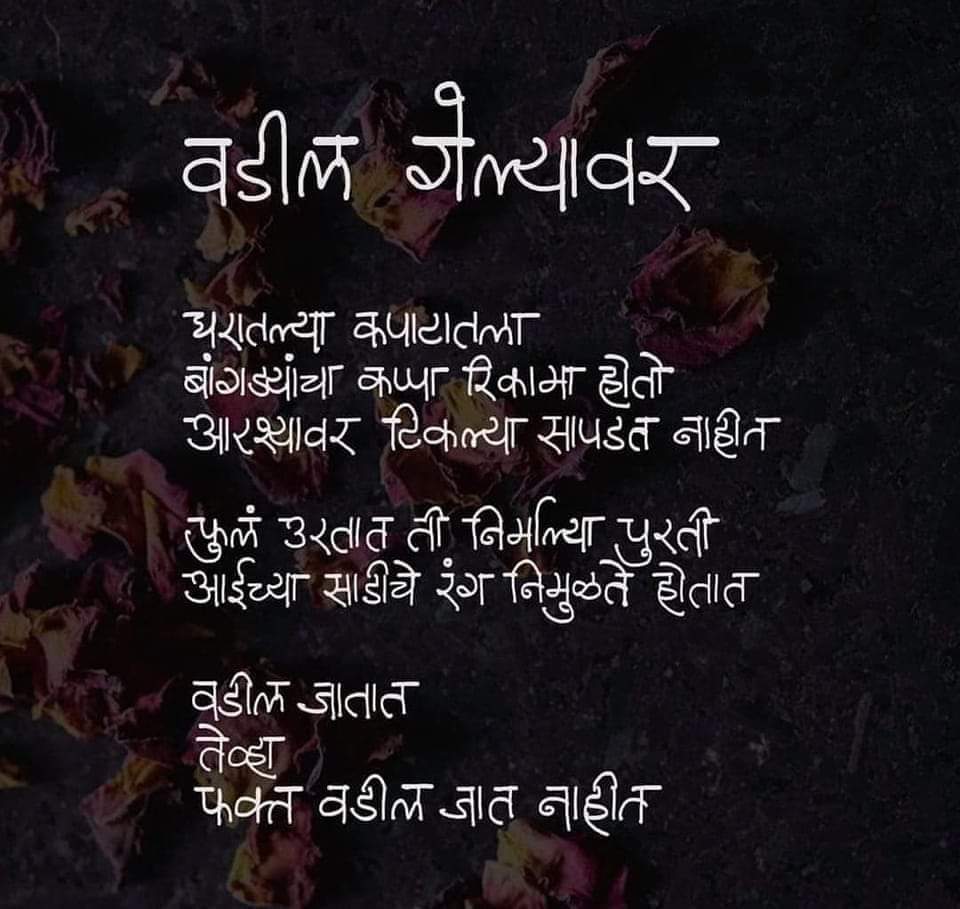 वडील गेल्यावर
घरातल्या कपाटातला
बांगड्यांचा कप्पा रिकामा होतो
आरश्यावर टिकल्या सापडत नाहीत
फुलं उरतात ती निर्माल्या पुरती
आईच्या साडीचे रंग निमुळते होतात
वडील जातात
तेव्हा
फक्त वडील जात नाहीत